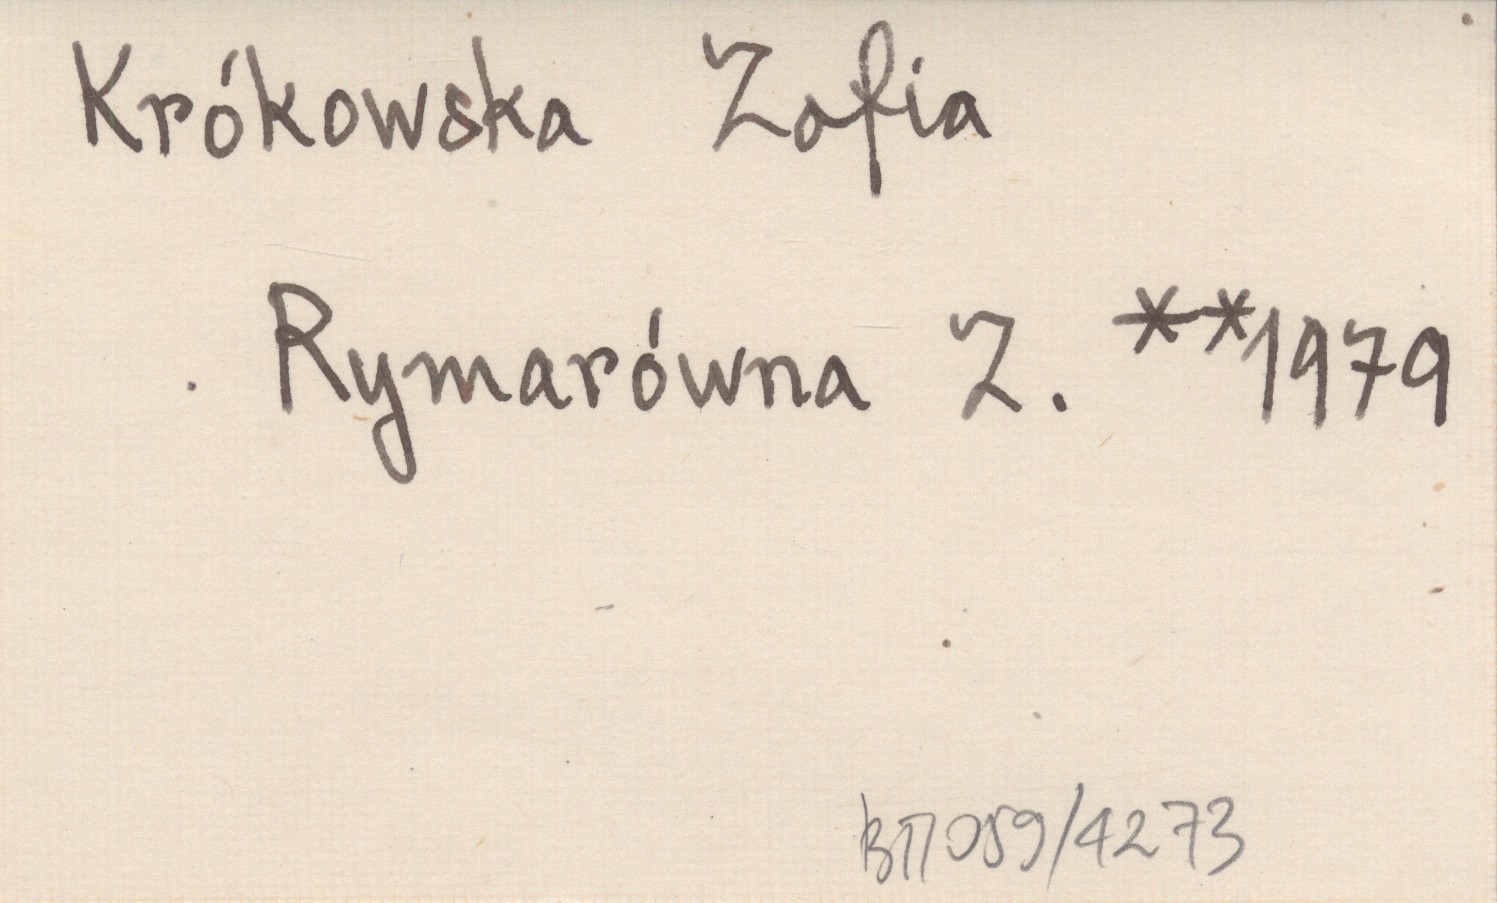 Krókowska Zofia
Rymarówna Z. **1979
BП059/4273